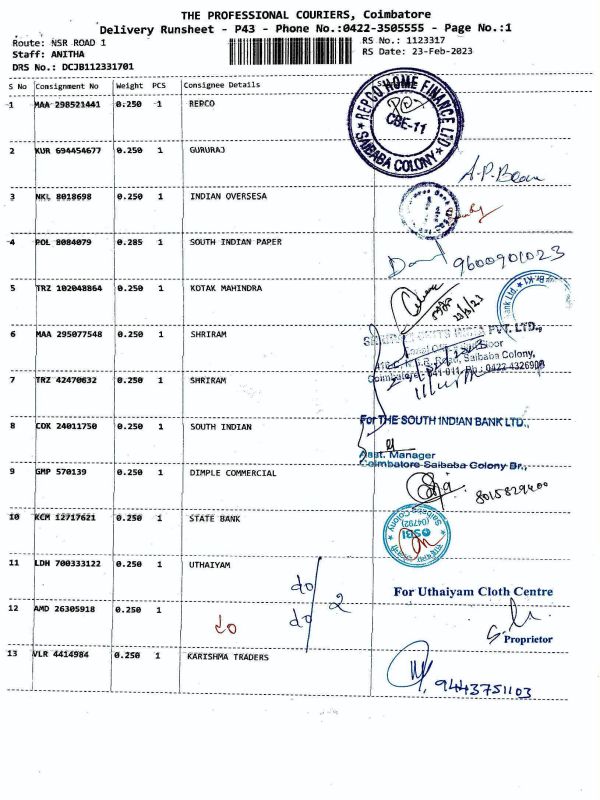 THE PROFESSIONAL COURIERS, Coimbatore
Delivery Runsheet - P43 - Phone No.:0422-3505555 - Page No.:1
Route: NSR ROAD 1 RS No.: 1123317
Staff: ANITHA RS Date: 23-Feb-2023
DRS No.: DCJB112331701
S No Consignment No Weight PCS Consignee Details
1 MAA 298521441 0.250 1 REPCO
REPCO HOME FINANCE LTD
CBE-11
SAIBABA COLONY
2 KUR 694454677 0.250 1 GURURAJ
3 NKL 8018698 0.250 1 INDIAN OVERSESA
4 POL 8084079 0.285 1 SOUTH INDIAN PAPER
9600901023
5 TRZ 102048864 0.250 1 KOTAK MAHINDRA
6 MAA 295077548 0.250 1 SHRIRAM
PVT. LTD.,
Saibaba Colony,
7 TRZ 42470632 0.250 1 SHRIRAM
8 COK 24011750 0.250 1 SOUTH INDIAN
For THE SOUTH INDIAN BANK LTD.,
Asst. Manager
Coimbatore Saibaba Colony Br.,
9 GMP 570139 0.250 1 DIMPLE COMMERCIAL
8015829400
10 KCM 12717621 0.250 1 STATE BANK
SBI
(04792)
11 LDH 700333122 0.250 1 UTHAIYAM
do
For Uthaiyam Cloth Centre
12 AMD 26305918 0.250 1
do do 2
Proprietor
13 VLR 4414984 0.250 1 KARISHMA TRADERS
9443751103